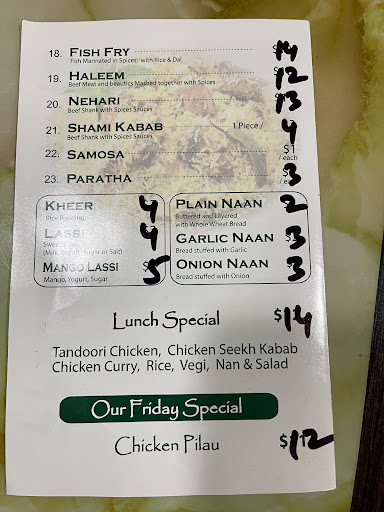 18. FISH FRY $14
Fish Marinated in Spices, with Rice & Dal
19. HALEEM 12
Beef Meat and beautics Mashed together with Spices
20. NEHARI 13
Beef Shank with Spices Sauces
21. SHAMI KABAB 1 Piece / 4
Beef Shank with Spices Sauces
22. SAMOSA $1 / each
23. PARATHA $3
KHEER 4
Rice Pudding
LASSI 4
(Milk, Yogurt, Sugar or Salt)
MANGO LASSI 5
Mango, Yogurt, Sugar
PLAIN NAAN 2
Buttered and Layered
with Whole Wheat Bread
GARLIC NAAN $3
Bread stuffed with Garlic
ONION NAAN $3
Bread stuffed with Onion
Lunch Special $14
Tandoori Chicken, Chicken Seekh Kabab
Chicken Curry, Rice, Vegi, Nan & Salad
Our Friday Special
Chicken Pilau $12